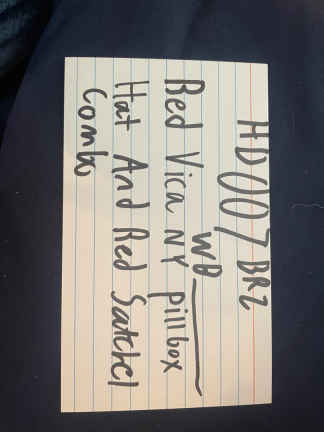 HD007 BR2
WB
Bed Vica NY Pillbox
Hat And Red Satchel
Combo